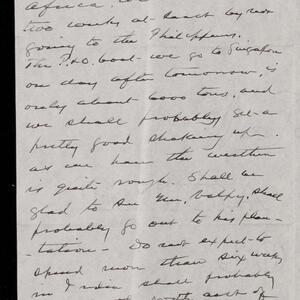 Africa. We
two weeks at least by not
going to the Philippines.
The P. & O. boat we go to Singapore
on day after tomorrow, is
only about 6000 tons, and
we shall probably get a
pretty good shaking up.
as we hear the weather
is quite rough. Shall be
glad to see Gen. Valpy. Shall
probably go out to his plan-
tation - Do not expect to
spend more than six weeks
in India shall probably
north east of